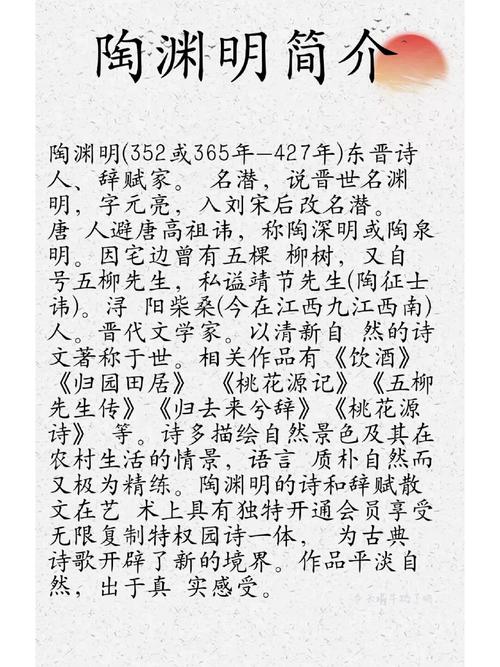 陶渊明简介
陶渊明(352或365年—427年)东晋诗
人、辞赋家。 名潜，说晋世名渊
明，字元亮，入刘宋后改名潜。
唐 人避唐高祖讳，称陶深明或陶泉
明。因宅边曾有五棵 柳树，又自
号五柳先生，私谥靖节先生(陶征士
讳)。浔 阳柴桑(今在江西九江西南)
人。晋代文学家。以清新自 然的诗
文著称于世。相关作品有《饮酒》
《归园田居》 《桃花源记》《五柳
先生传》《归去来兮辞》《桃花源
诗》 等。诗多描绘自然景色及其在
农村生活的情景，语言 质朴自然而
又极为精练。陶渊明的诗和辞赋散
文在艺 术上具有独特开通会员享受
无限复制特权园诗一体， 为古典
诗歌开辟了新的境界。作品平淡自
然，出于真 实感受。